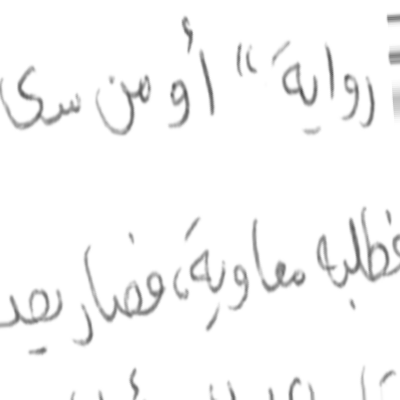 رواية " أو من سكى
فطلبه معاوية، فصار يعد